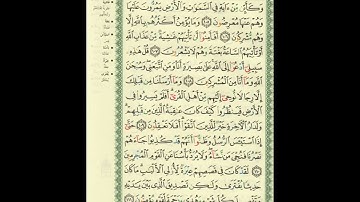 وَكَأَيِّن مِّنْ ءَايَةٍ فِى ٱلسَّمَٰوَٰتِ وَٱلْأَرْضِ يَمُرُّونَ عَلَيْهَا
وَهُمْ عَنْهَا مُعْرِضُونَ ١٠٥ وَمَا يُؤْمِنُ أَكْثَرُهُم بِٱللَّهِ إِلَّا
وَهُم مُّشْرِكُونَ ١٠٦ أَفَأَمِنُوٓا۟ أَن تَأْتِيَهُمْ غَٰشِيَةٌ مِّنْ عَذَابِ ٱللَّهِ
أَوْ تَأْتِيَهُمُ ٱلسَّاعَةُ بَغْتَةً وَهُمْ لَا يَشْعُرُونَ ١٠٧ قُلْ هَٰذِهِۦ
سَبِيلِىٓ أَدْعُوٓا۟ إِلَى ٱللَّهِ عَلَىٰ بَصِيرَةٍ أَنَا۠ وَمَنِ ٱتَّبَعَنِى وَسُبْحَٰنَ
ٱللَّهِ وَمَآ أَنَا۠ مِنَ ٱلْمُشْرِكِينَ ١٠٨ وَمَآ أَرْسَلْنَا مِن قَبْلِكَ
إِلَّا رِجَالًا نُّوحِىٓ إِلَيْهِم مِّنْ أَهْلِ ٱلْقُرَىٰٓ أَفَلَمْ يَسِيرُوا۟ فِى
ٱلْأَرْضِ فَيَنظُرُوا۟ كَيْفَ كَانَ عَٰقِبَةُ ٱلَّذِينَ مِن قَبْلِهِمْ
وَلَدَارُ ٱلْءَاخِرَةِ خَيْرٌ لِّلَّذِينَ ٱتَّقَوْا۟ أَفَلَا تَعْقِلُونَ ١٠٩
حَتَّىٰٓ إِذَا ٱسْتَيْـَٔسَ ٱلرُّسُلُ وَظَنُّوٓا۟ أَنَّهُمْ قَدْ كُذِبُوا۟ جَآءَهُمْ
نَصْرُنَا فَنُجِّىَ مَن نَّشَآءُ وَلَا يُرَدُّ بَأْسُنَا عَنِ ٱلْقَوْمِ ٱلْمُجْرِمِينَ
١١٠ لَقَدْ كَانَ فِى قَصَصِهِمْ عِبْرَةٌ لِّأُو۟لِى ٱلْأَلْبَٰبِ مَا كَانَ
حَدِيثًا يُفْتَرَىٰ وَلَٰكِن تَصْدِيقَ ٱلَّذِى بَيْنَ يَدَيْهِ
وَتَفْصِيلَ كُلِّ شَىْءٍ وَهُدًى وَرَحْمَةً لِّقَوْمٍ يُؤْمِنُونَ